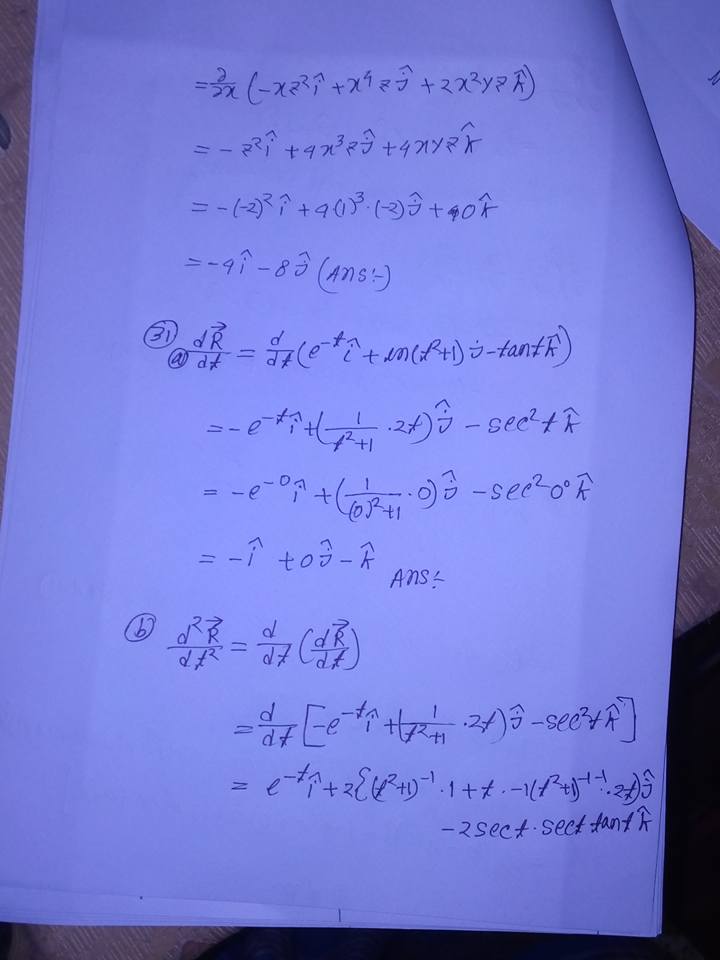 = ∂/∂x (-xz² î + x⁴z ĵ + 2x²yz k̂)
= - z² î + 4x³z ĵ + 4xyz k̂
= -(-2)² î + 4(1)³·(-2) ĵ + 0 k̂
= -4 î - 8 ĵ (Ans:-)
31 (a) dR⃗/dt = d/dt (e^-t î + ln(t²+1) ĵ - tant k̂)
= -e^-t î + (1/(t²+1) · 2t) ĵ - sec²t k̂
= -e^-0 î + (1/((0)²+1) · 0) ĵ - sec²0° k̂
= - î + 0 ĵ - k̂ Ans:-
(b) d²R⃗/dt² = d/dt (dR⃗/dt)
= d/dt [-e^-t î + (1/(t²+1) · 2t) ĵ - sec²t k̂]
= e^-t î + 2{(t²+1)^-1 · 1 + t · -1(t²+1)^-1-1 · 2t) ĵ
-2sect · sect tant k̂